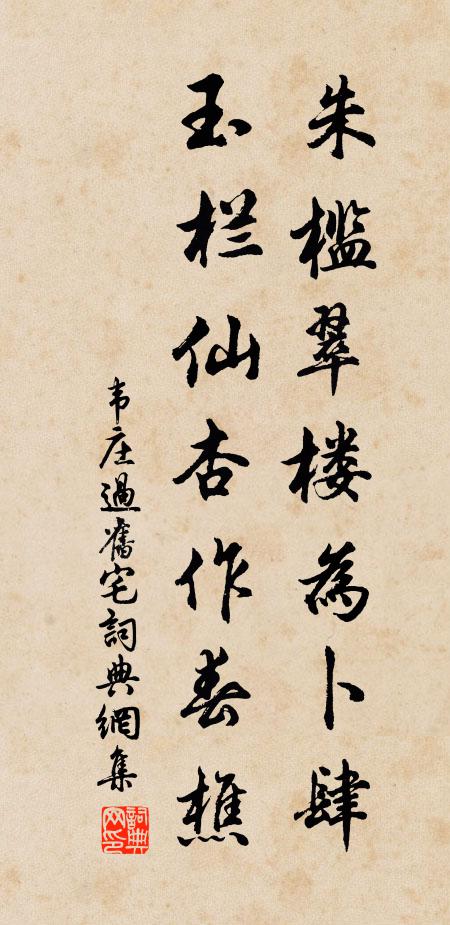 朱檻翠楼為卜肆
玉栏仙杏作春樵
韦庄過舊宅詞典網集
詞典网印